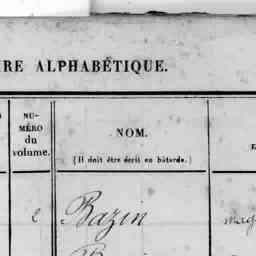 RE ALPHABÉTIQUE.
NU-
MÉRO
du
volume.
NOM.
(Il doit être écrit en bâtarde.)
2 Bazin